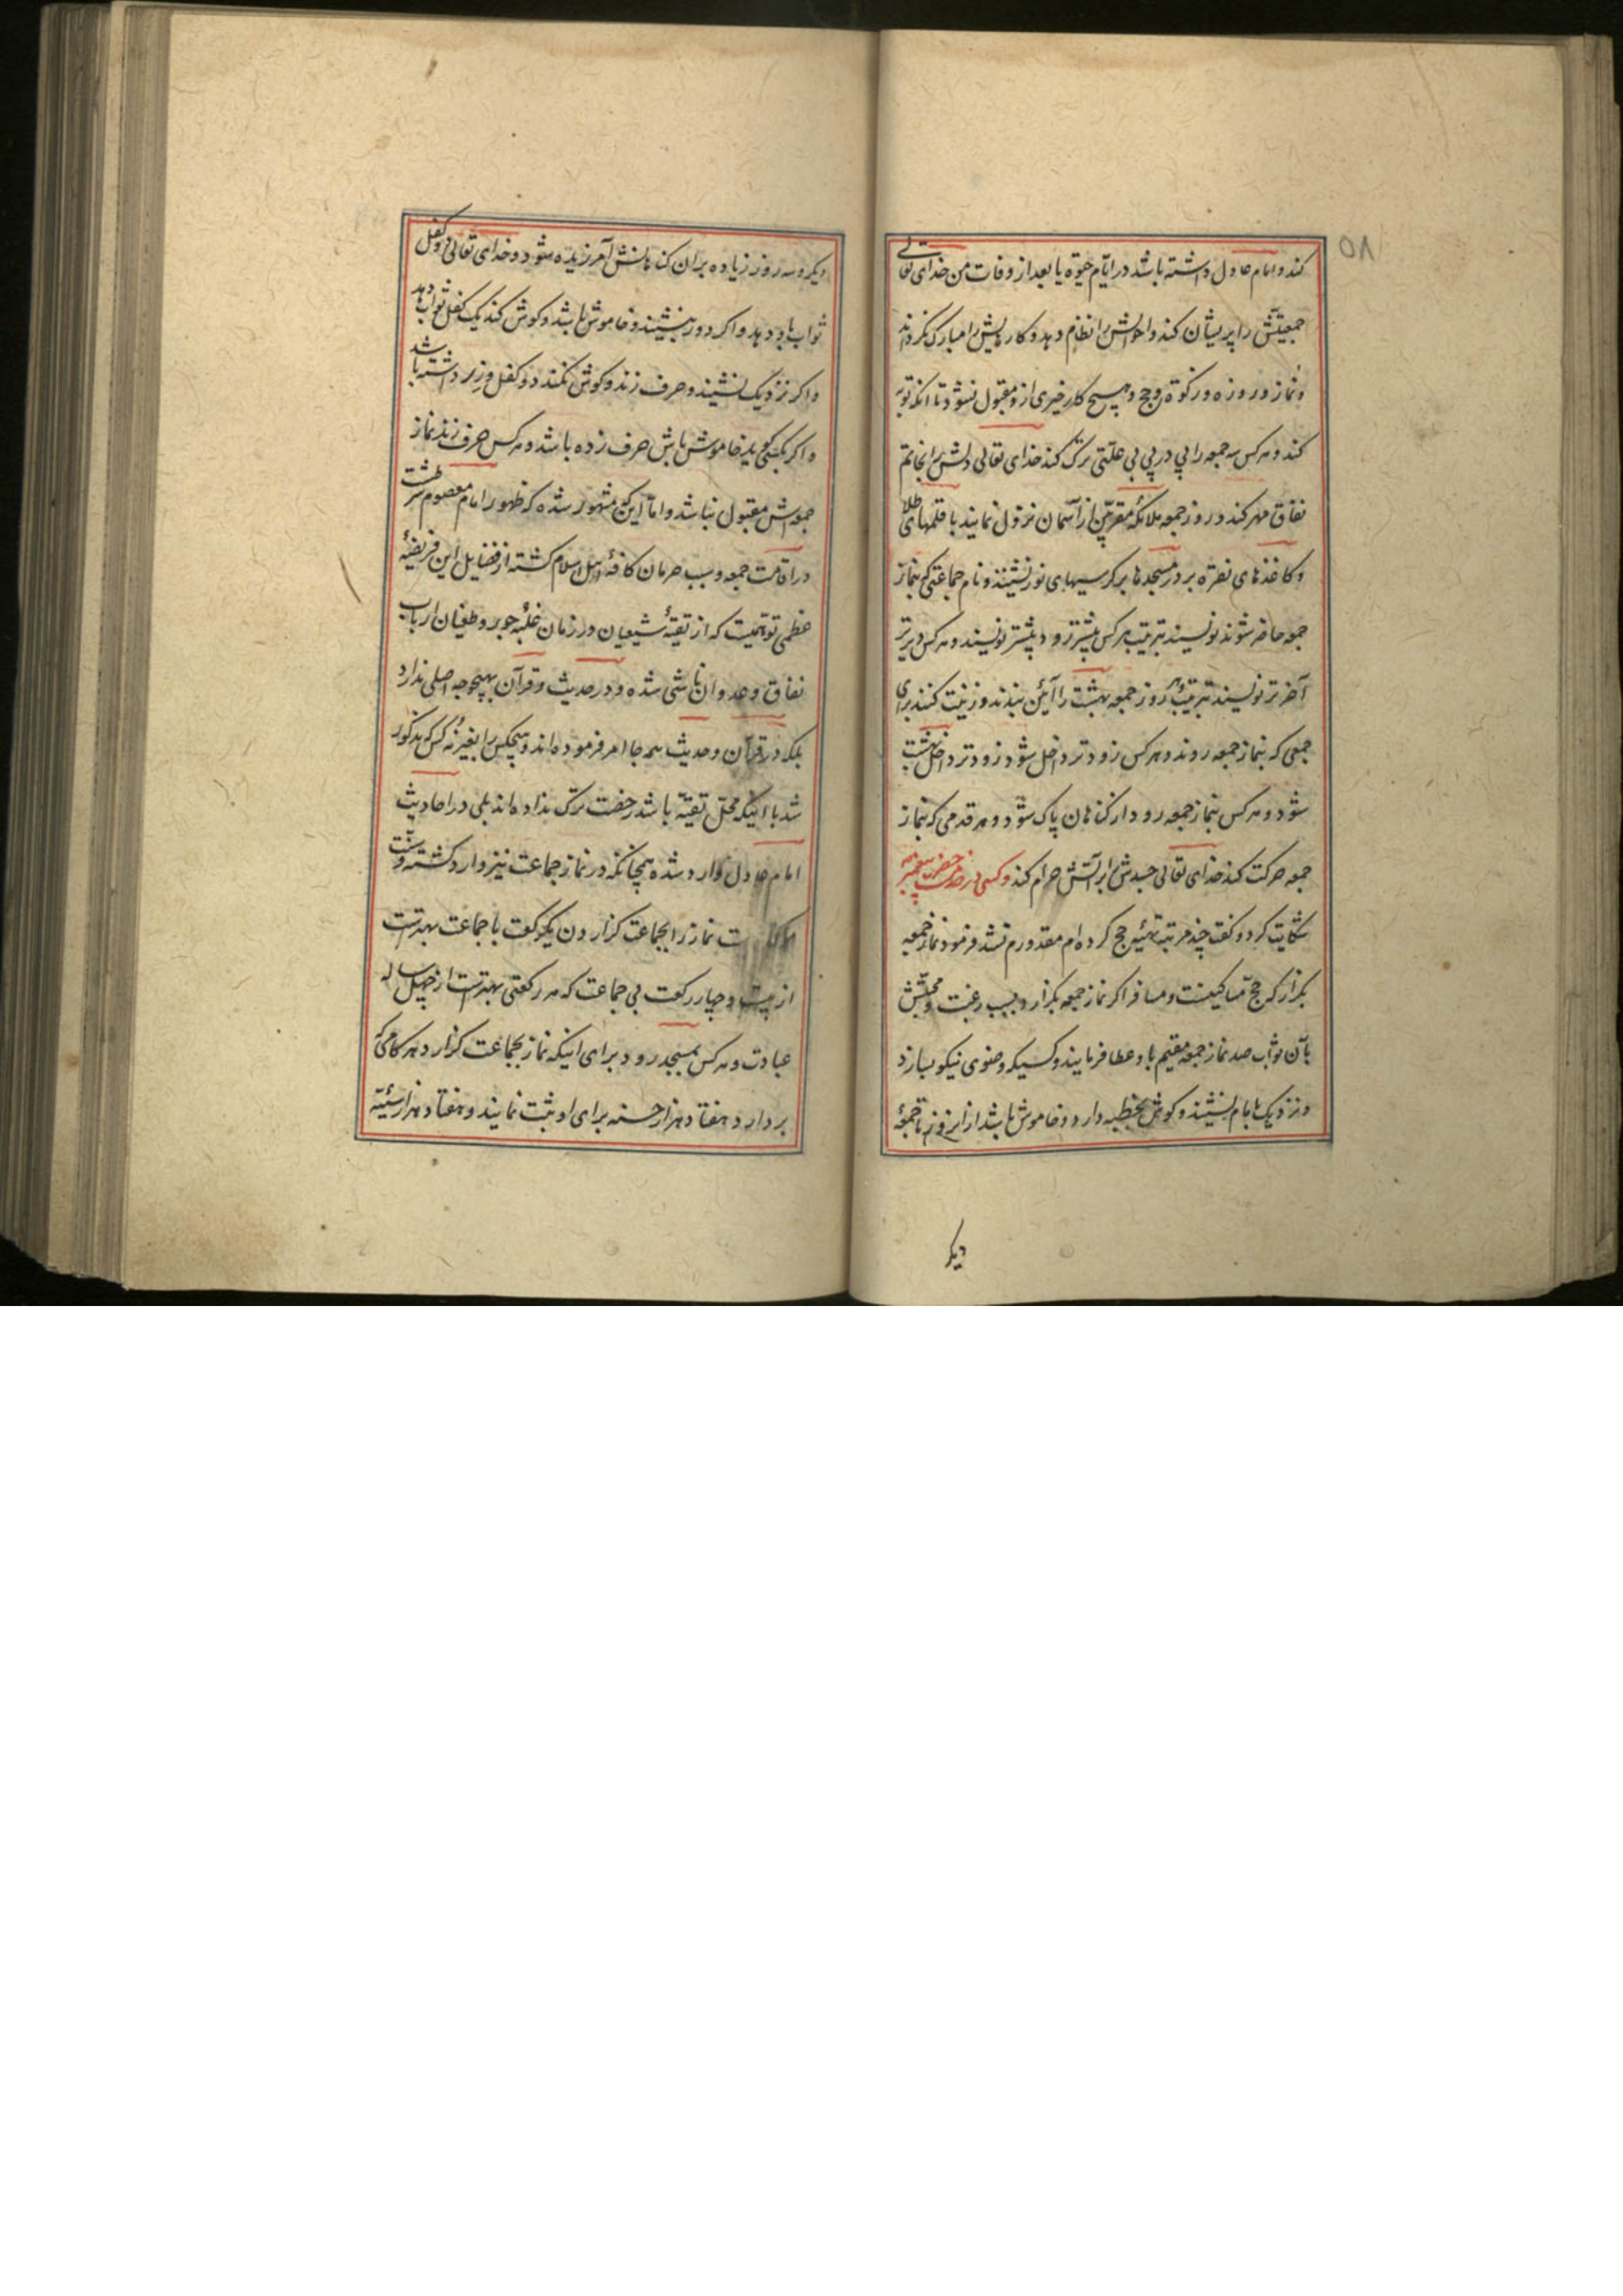 ۵۸
کند و امام عادل داشته باشد در ایّام حیوة یا بعد از وفات من خدای تعالی
جمعیّتش را پریشان کند و احوالش را نظام ندهد و کارهایش را مبارک نگرداند
و نماز و روزه و زکوة و حج و هیچ کار خیری ازو مقبول نشود تا آنکه توبه
کند و هر کس سه جمعه را پی در پی بی علتی ترک کند خدای تعالی دلش را بخاتم
نفاق مهر کند و روز جمعه ملائکه مقرّبین از آسمان نزول نمایند با قلمهای طلا
و کاغذهای نقره بر در مسجدها بر کرسیهای نور نشینند و نام جماعتی که بنماز
جمعه حاضر شوند نویسند بترتیب هر کس پیشتر رود پیشتر نویسند و هر کس دیرتر
آخرتر نویسند بترتیب روز جمعه بهشت را آئین بندند و زینت کنند برای
جمعی که بنماز جمعه روند و هر کس زودتر داخل شود زودتر داخل بهشت
شود و هر کس بنماز جمعه رود از گناهان پاک شود و هر قدمی که بنماز
جمعه حرکت کند خدای تعالی جسدش را بر آتش حرام کند و کسی در خدمت حضرت پیغمبر
شکایت کرد و گفت چند مرتبه تهیّه حج کرده‌ام مقدورم نشد فرمود نماز جمعه
بگزار که حج مساکینست و مسافر اگر نماز جمعه بگزارد بسبب رغبت و محبّتش
بآن ثواب صد نماز جمعه مقیم باو عطا فرمایند و کسیکه وضوی نیکو بسازد
و نزدیک بامام نشیند و گوش بخطبه دارد و خاموش باشد از این روز تا جمعهٔ
دیگر
دیگر و سه روز زیاده بر آن گناهانش آمرزیده شود و خدای تعالی دو کفل
ثواب باو دهد و اگر دور بنشیند و خاموش باشد و گوش کند یک کفل ثواب دهد
و اگر نزدیک نشیند و حرف زند و گوش نکند دو کفل وزر داشته باشد
و اگر بکسی گوید خاموش باش حرف زده باشد و هر کس حرف زند نماز
جمعه‌اش مقبول نباشد و امّا اینکه مشهور شده که ظهور امام معصوم شرطست
در اقامت جمعه و سبب حرمان کافهٔ اهل اسلام گشته از فضایل این فریضهٔ
عظمی توهمیست که از تقیهٔ شیعیان در زمان غلبهٔ جور و طغیان ارباب
نفاق و عدوان ناشی شده و در حدیث و قرآن بهیچوجه اصلی ندارد
بلکه در قرآن و حدیث همه جا امر فرموده‌اند و هیچکس را بغیر نه کس که مذکور
شد با آنکه محلّ تقیّه باشد رخصت ترک نداده‌اند بلی در احادیث
امام عادل وارد شده همچنانکه در نماز جماعت نیز وارد گشته و سنّت
نماز را بجماعت گزاردن یک رکعت با جماعت بهترست
از بیست و چهار رکعت بی جماعت که هر رکعتی بهترست از چهل ساله
عبادت و هر کس بمسجد رود برای اینکه نماز بجماعت گزارد هر گامی که
بردارد هفتاد هزار حسنه برای او ثبت نمایند و هفتاد هزار سیّئه